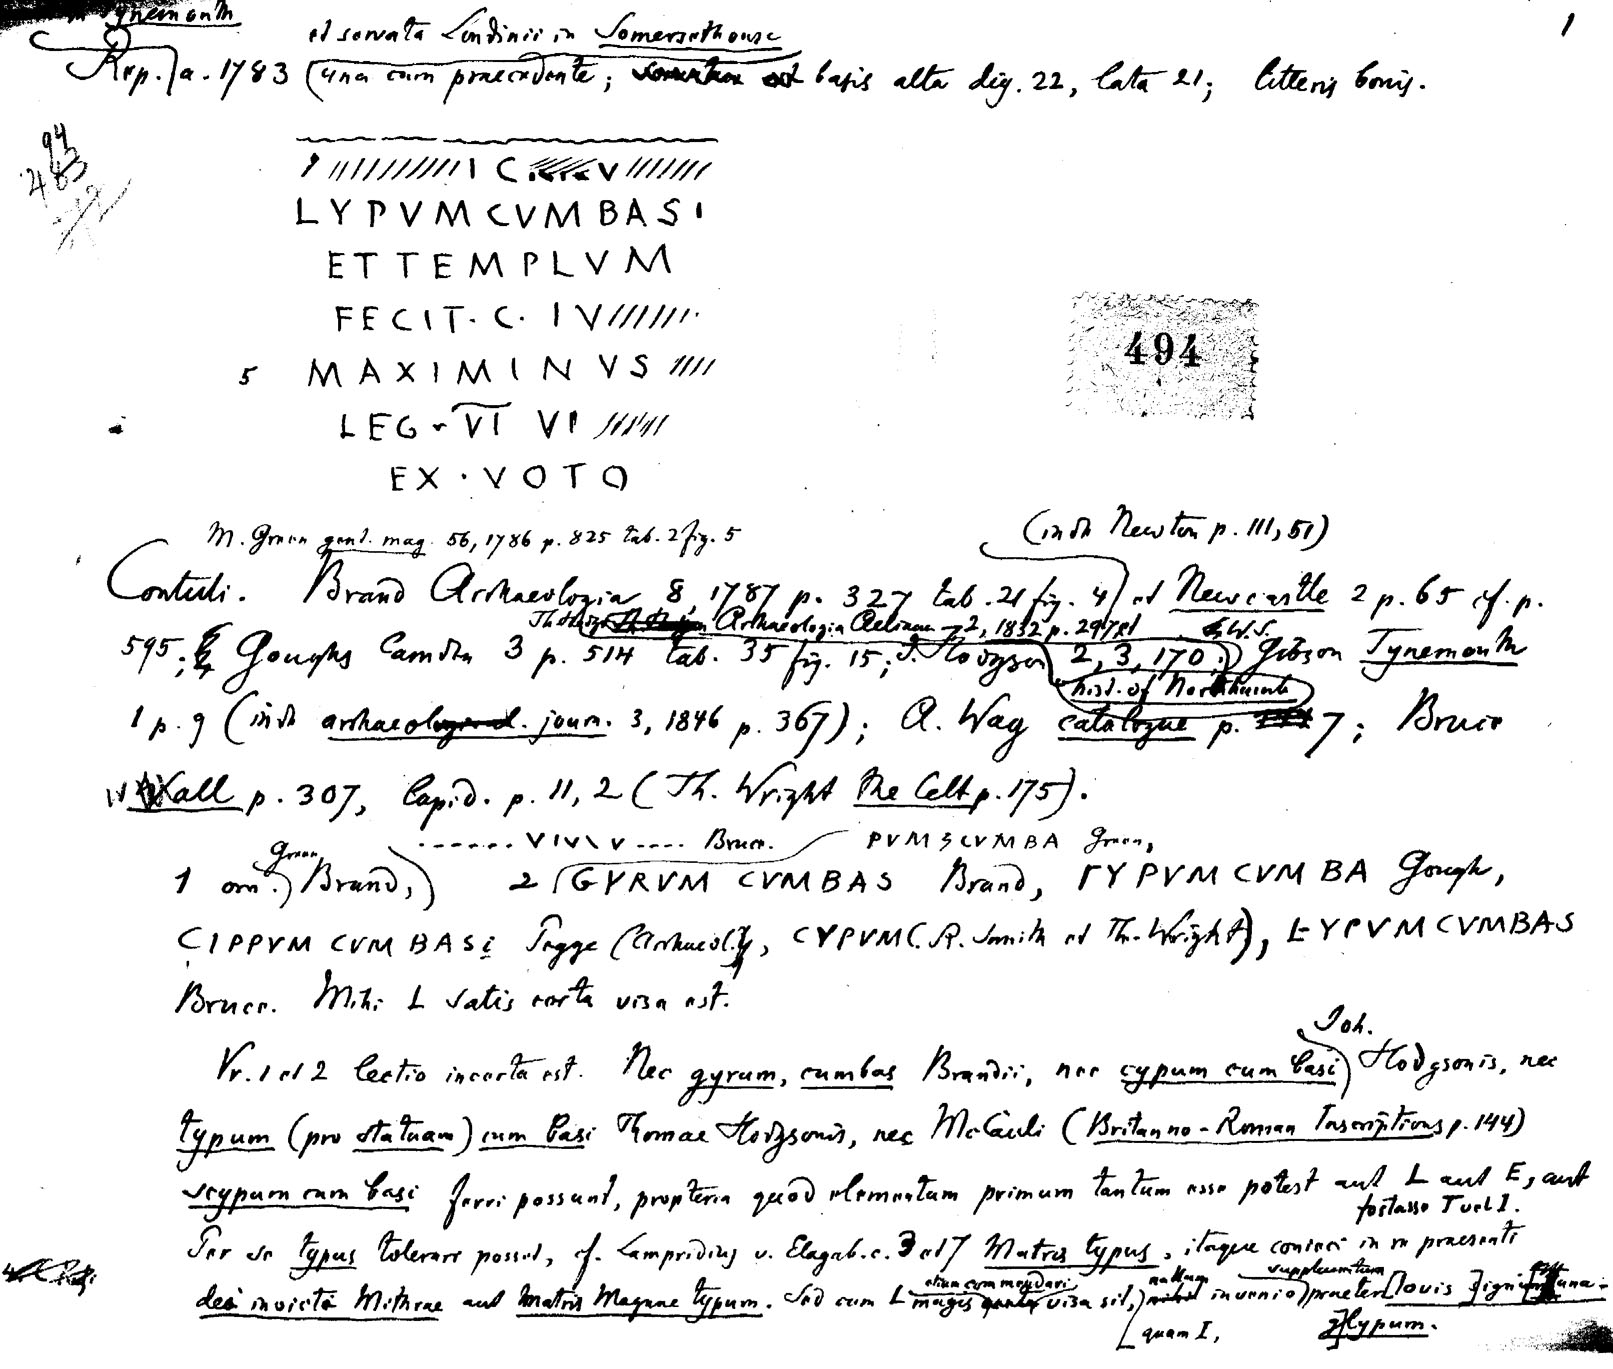 Tynemouth
1
et servata Londinii in Somersethouse
Rep. a. 1783 (una cum praecedente; basis alta dig. 22, lata 21; litteris bonis.
94
483
I C V
LYPVMCVMBASI
ET TEMPLVM
FECIT · C · IV
494
5 MAXIMINVS
LEG · VI VI
EX · VOTO
M. Green gent. mag. 56, 1786 p. 825 tab. 2 fig. 5
(inde Newton p. 111, 51)
Contuli. Brand Archaeologia 8, 1787 p. 327 tab. 21 fig. 4) et Newcastle 2 p. 65 cf. p.
Th. Hodgson Archaeologia Aeliana 2, 1832 p. 297 et W.S.
595; Goughs Camden 3 p. 514 tab. 35 fig. 15; J. Hodgson 2, 3, 170; Gibson Tynemouth
hist. of Northumb
1 p. 9 (inde archaeol. journ. 3, 1846 p. 367); A. Way catalogue p. 7; Bruce
Wall p. 307, lapid. p. 11, 2 (Th. Wright the Celt p. 175).
Green ...... VIV\V .... Bruce. PVMSCVMBA Green,
1 om. Brand, 2 GYRVM CVMBAS Brand, TYPVMCVMBA Gough,
CIPPVM CVM BASi Pegge (Archaeol.), CYPVM C. R. Smith et Th. Wright), LYPVMCVMBAS
Bruce. Mihi L satis certa visa est.
Joh.
Vv. 1 et 2 lectio incerta est. Nec gyrum, cumbas Brandii, nec cypum cum basi Hodgsonis, nec
typum (pro statuam) cum basi Thomae Hodgsonis, nec McCauli (Britanno-Roman Inscriptions p. 144)
scypum cum basi ferri possunt, propterea quod elementum primum tantum esse potest aut L aut E, aut
fortasse T vel I.
Per se typus tolerari posset, cf. Lampridius v. Elagab. c. 3 et 7 Matris typus, itaque conieci in re praesenti
etiam commendari nullum supplementum
dei invicti Mithrae aut Matris Magnae typum. Sed cum L magis visa sit, invenio praeter Iovis signi
quam I, glypum.